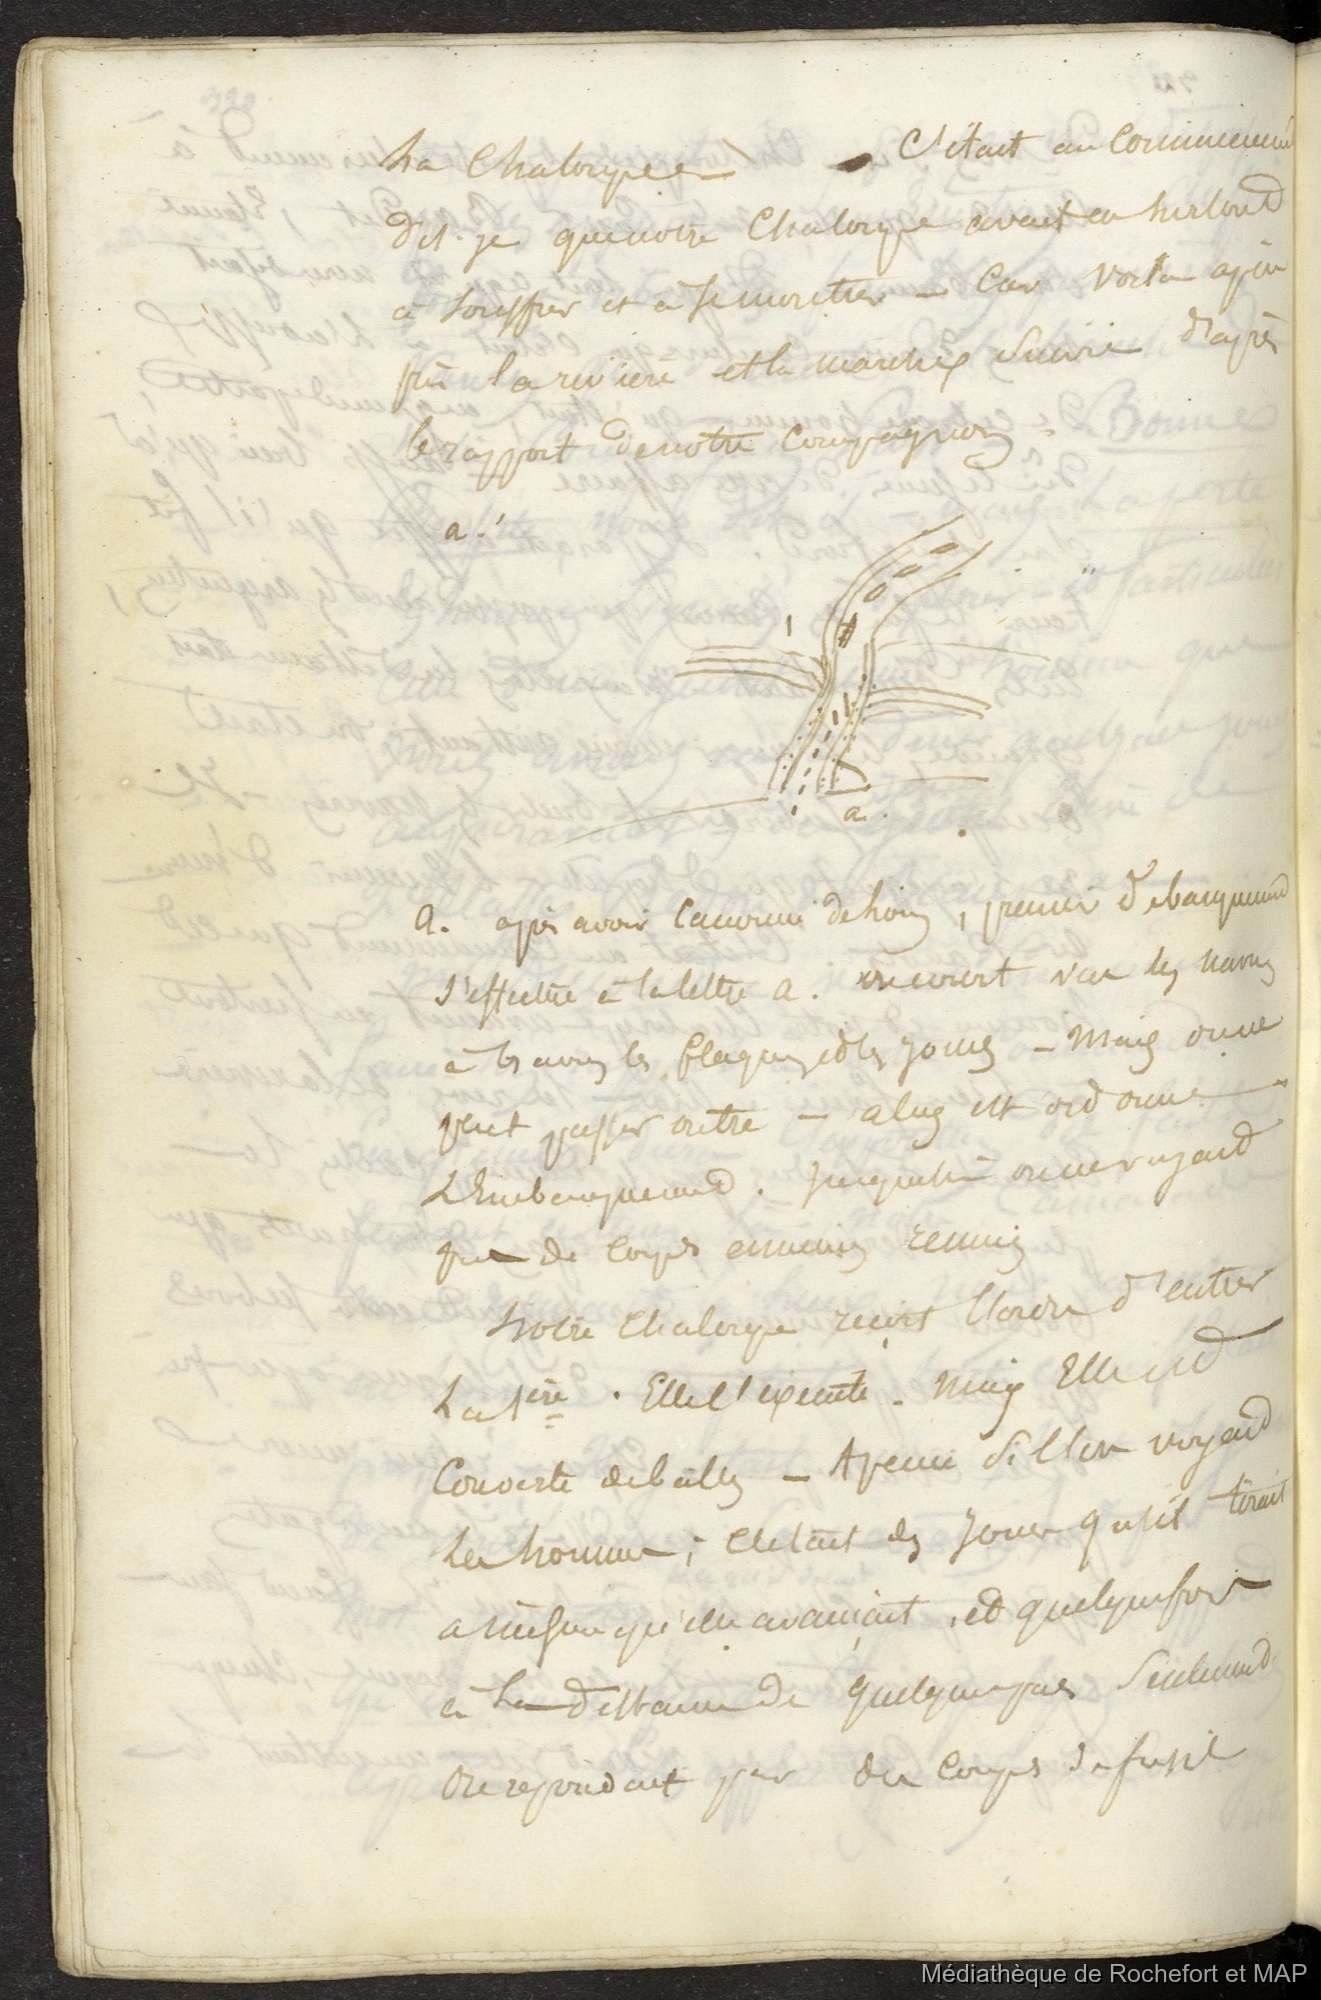 La Chaloupe C'était au Commencement
dis-je que notre Chaloupe avait eu surtout
à souffrir et à se montrer - Car voila a peu
près la rivière et la marche suivie d'après
le rapport de notre Compagnon
a.
a.
a. après avoir canonné de loin, premier debarquement
s'effectue à la lettre a. on court vers les
à travers les flaques et les joncs - Mais on ne
peut passer outre - alors est ordonné
L'Embarquement. Jusqu'ici on ne voyait
pas de Corps ennemis réunis
Notre Chaloupe reçoit l'ordre d'entrer
La 1ère. Elle l'exécute - Mais Elle est
Couverte de balles - A peine si l'on voyait
Les hommes; C'était des joncs qu'ils tiraient
à mesure qu'elle avançait, et quelquefois
à la distance de quelques pas seulement
On répondait par des Coups de fusil
Médiathèque de Rochefort et MAP